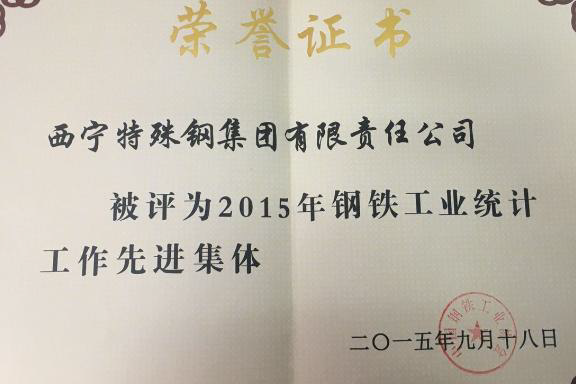 荣誉证书
西宁特殊钢集团有限责任公司
被评为2015年钢铁工业统计
工作先进集体
二〇一五年九月十八日